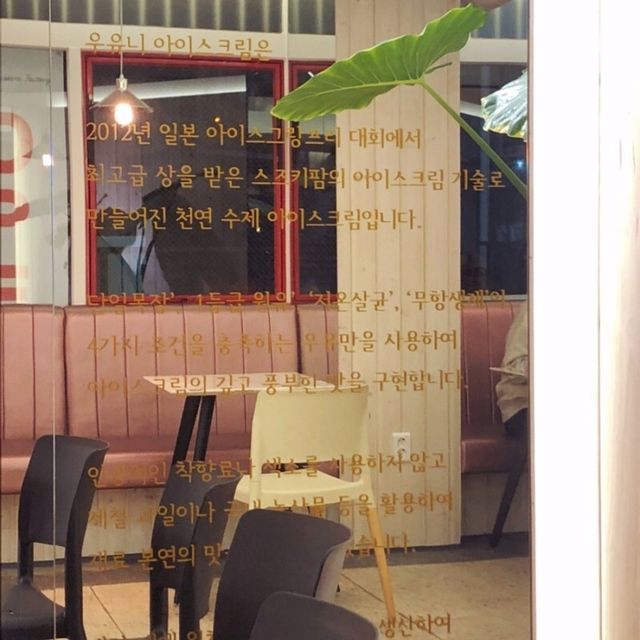 우유니 아이스크림은
2012년 일본 아이스크림프리 대회에서
최고급 상을 받은 스즈키팜의 아이스크림 기술로
만들어진 천연 수제 아이스크림입니다.
단일목장', '1등급 원유', '저온살균', '무항생제'의
4가지 조건을 충족하는 우유만을 사용하여
아이스크림의 깊고 풍부한 맛을 구현합니다.
인공적인 착향료나 색소를 사용하지 않고
제철 과일이나 국내 농산물 등을 활용하여
재료 본연의 맛
생산하여